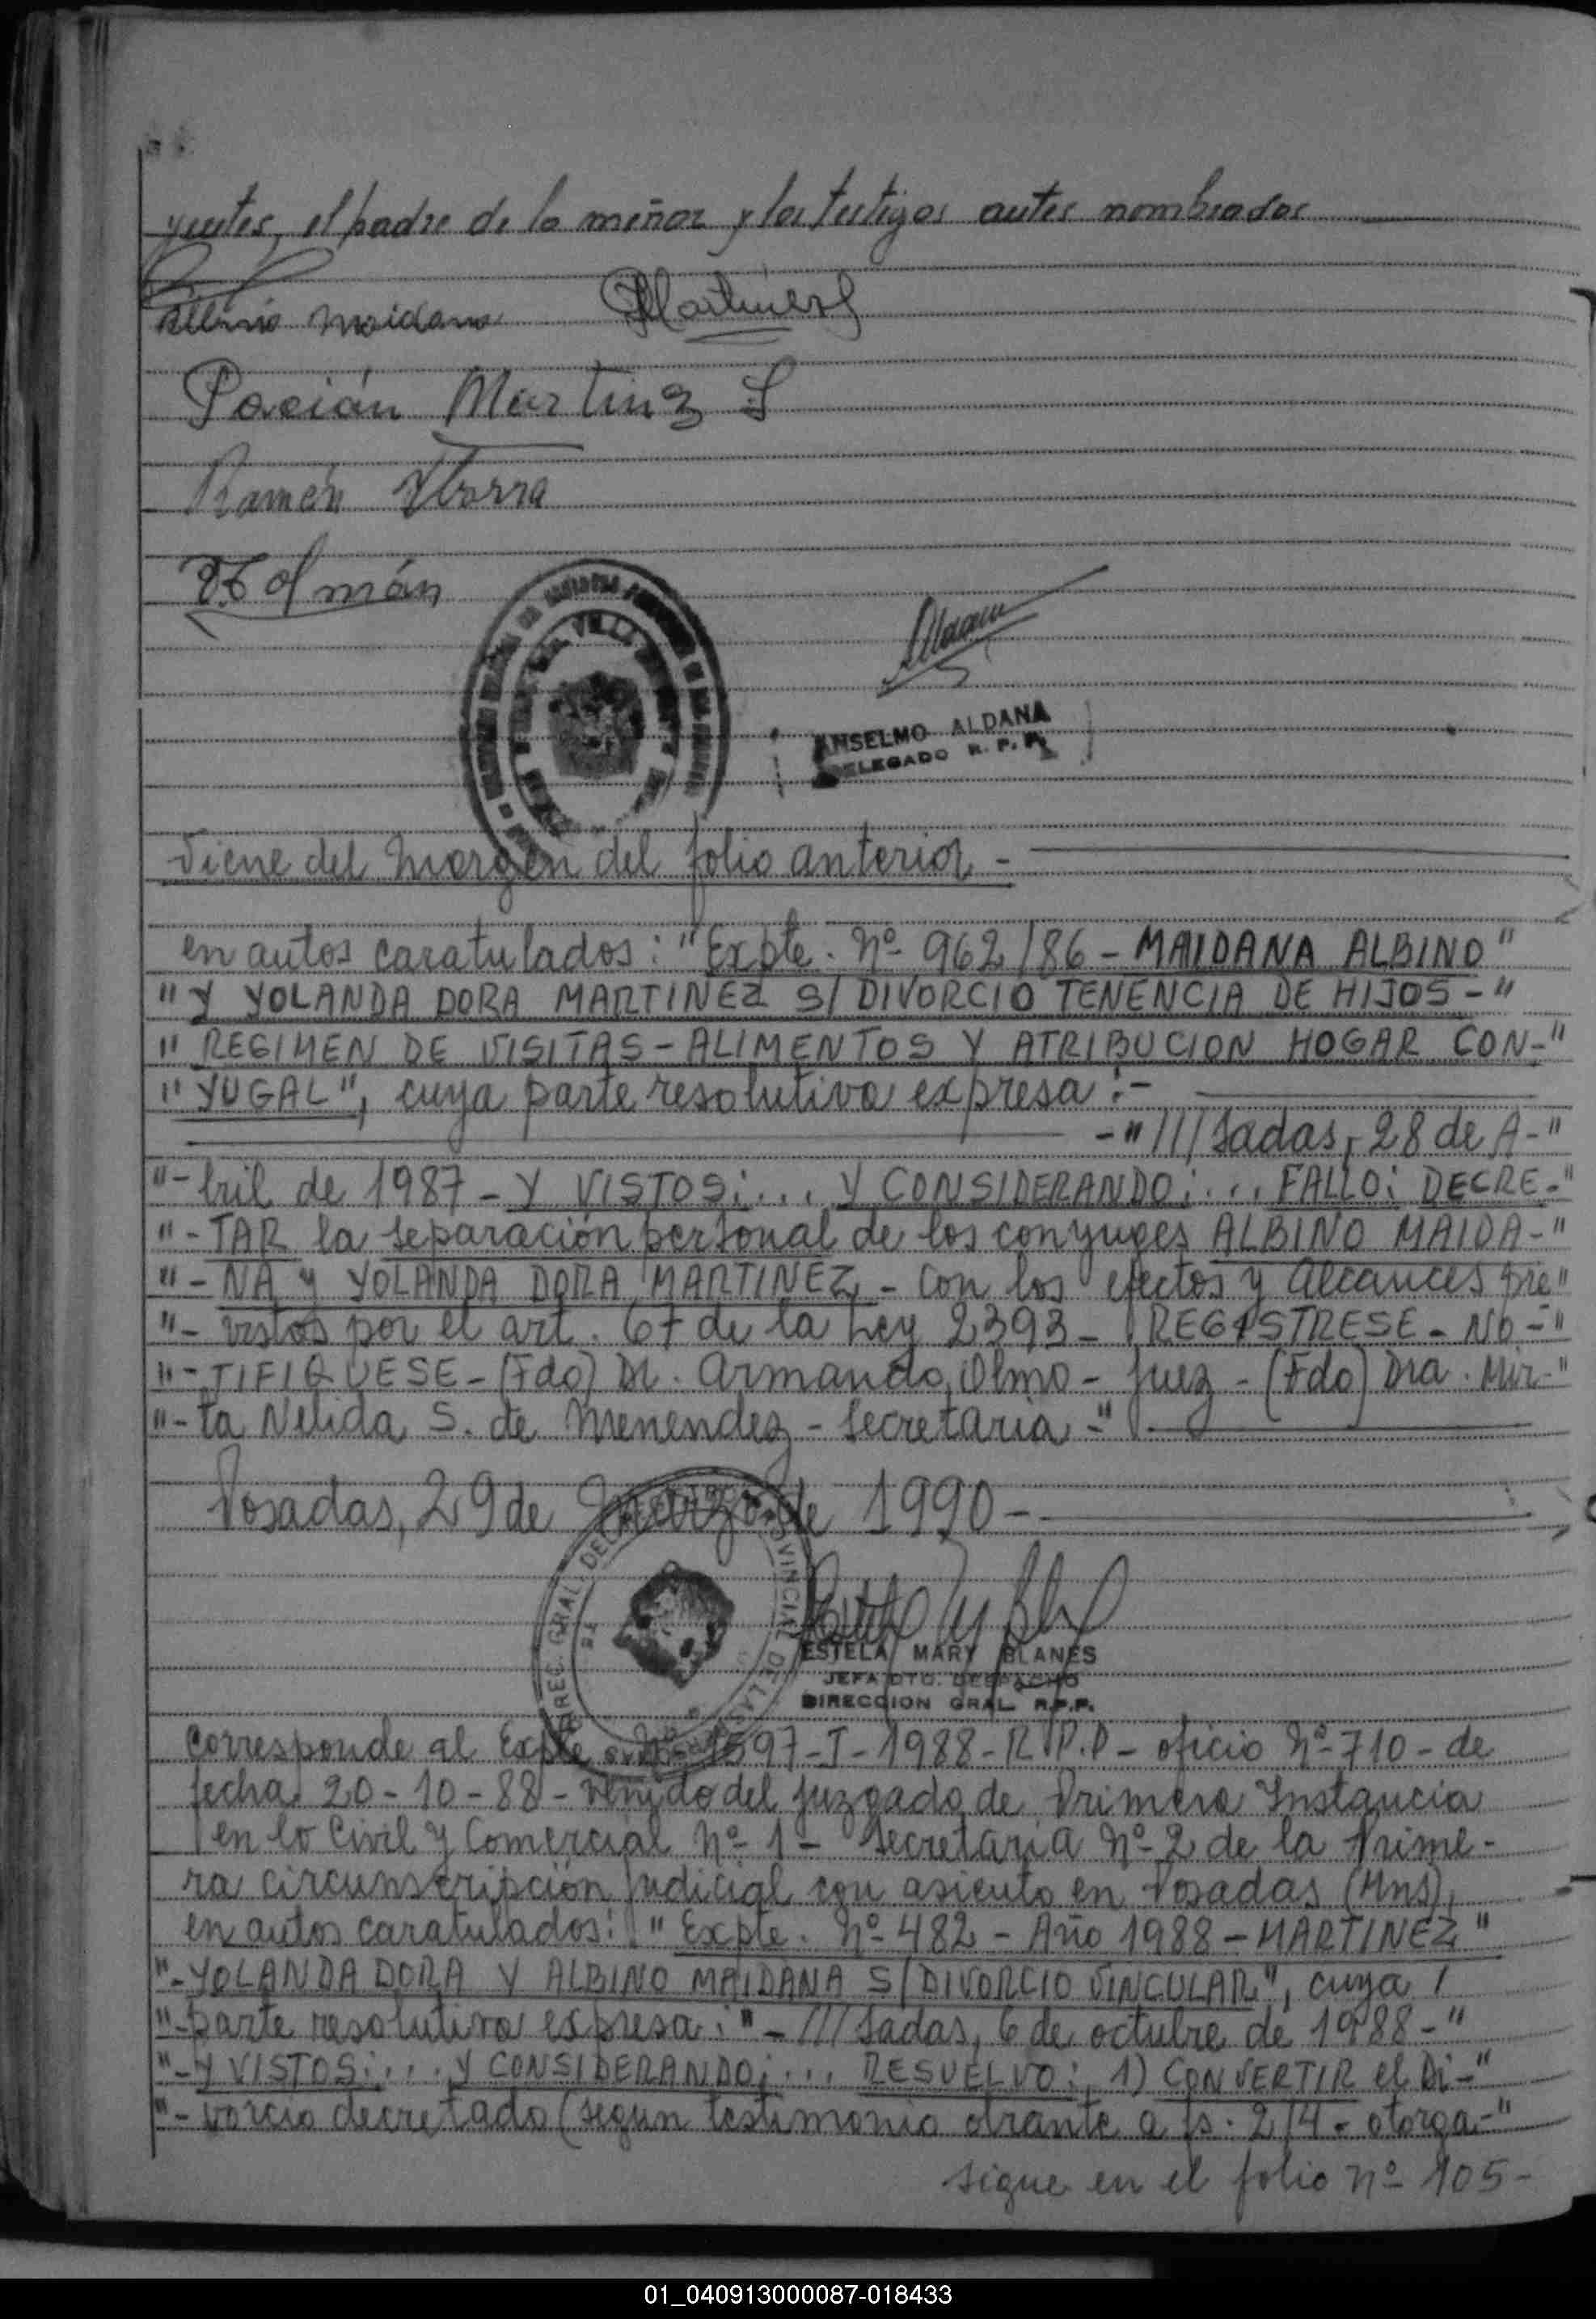 yentes, el padre de la menor y los testigos antes nombrados
Albino Maidana Martinez
Pacián Martinz
Ramón Ybarra
ANSELMO ALDANA
DELEGADO R. P. P.
Viene del margen del folio anterior -
en autos caratulados: "Expte. Nº 962/86 - MAIDANA ALBINO"
"Y YOLANDA DORA MARTINEZ S/ DIVORCIO TENENCIA DE HIJOS - "
" REGIMEN DE VISITAS - ALIMENTOS Y ATRIBUCION HOGAR CON-"
"YUGAL", cuya parte resolutiva expresa: -
- "///sadas, 28 de A-"
"- bril de 1987 - Y VISTOS: ... Y CONSIDERANDO: ... FALLO: DECRE-"
"- TAR la separación personal de los conyuges ALBINO MAIDA-"
"- NA y YOLANDA DORA MARTINEZ - con los efectos y alcances pre"
"- vistos por el art. 67 de la Ley 2393 - REGISTRESE - NO - "
"- TIFIQUESE - (Fdo) Dr. Armando Olmo - Juez - (Fdo) Dra. Mir-"
"- ta Nelida S. de Menendez - Secretaria - "
Posadas, 29 de Marzo de 1990 -
ESTELA MARY BLANES
JEFA DTO. DESPACHO
DIRECCION GRAL. R.P.P.
Corresponde al Expte Nº 1597 - I - 1988 - R.P.P - oficio Nº 710 - de
fecha 20 - 10 - 88 - venido del Juzgado de Primera Instancia
en lo Civil y Comercial Nº 1 - Secretaria Nº 2 de la Prime -
ra circunscripción Judicial con asiento en Posadas (Mns),
en autos caratulados: "Expte. Nº 482 - Año 1988 - MARTINEZ "
"- YOLANDA DORA Y ALBINO MAIDANA S/ DIVORCIO VINCULAR", cuya /
"- parte resolutiva expresa: " - ///sadas, 6 de octubre de 1988 - "
"- Y VISTOS: ... Y CONSIDERANDO: ... RESUELVO: 1) CONVERTIR el Di-"
"- vorcio decretado (segun testimonio obrante a fs. 2/4 - otorga-"
sigue en el folio Nº 105 -
01_040913000087-018433